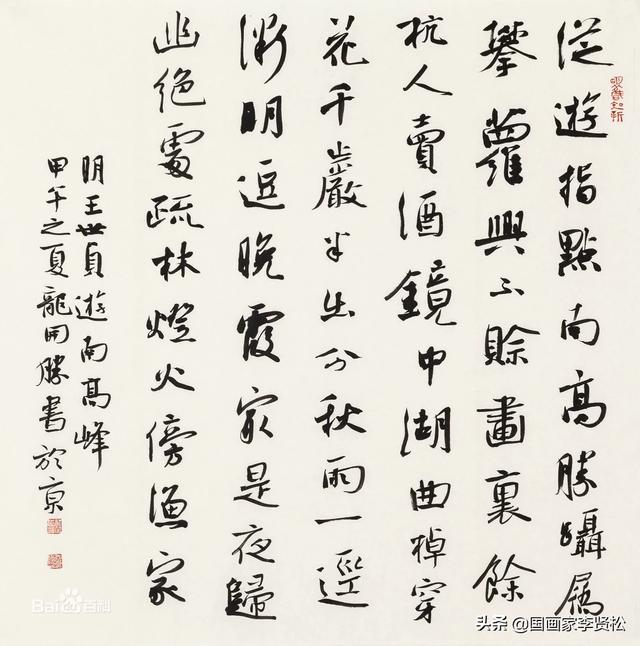 從遊指點南高勝躡屩
攀蘿興不賒畫裏餘
杭人賣酒鏡中湖曲棹穿
花千巖半出分秋雨一逕
漸明逗晚霞最是夜歸
幽絕處疏林燈火傍漁家
明王世貞遊南高峰
甲午之夏龍開勝書於京
Bai百科
头条 @国画家李贤松